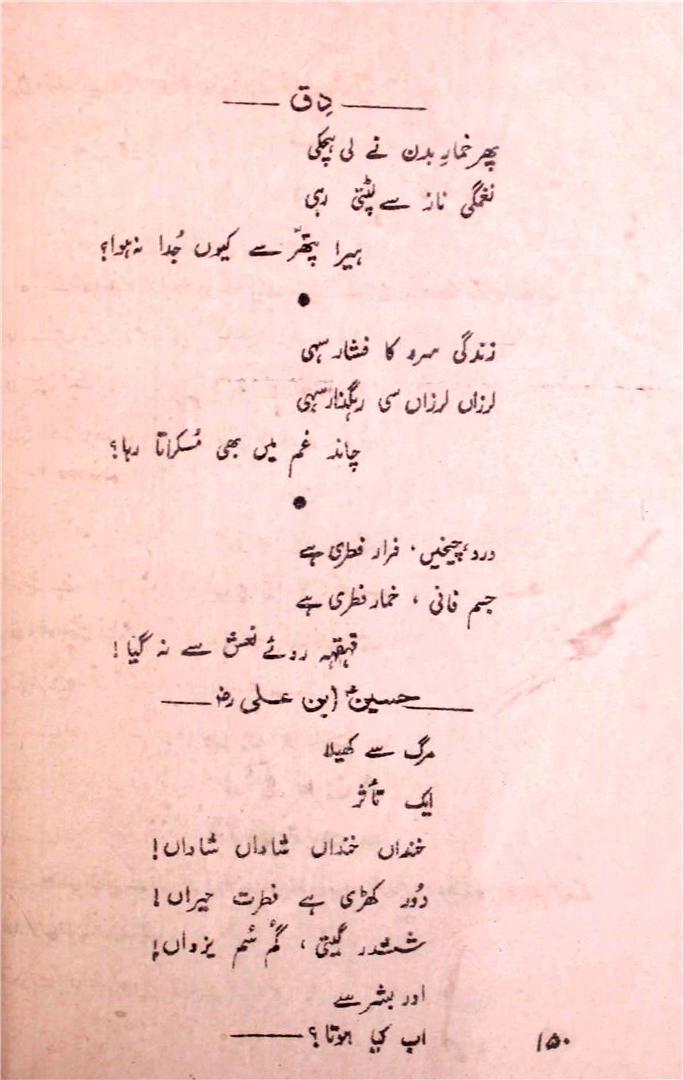 دِق
پھر خمارِ بدن نے لی ہچکی
نغمگی ناز سے لپٹتی رہی
ہیرا پتھّر سے کیوں جُدا نہ ہوا؟
●
زندگی سرو کا فشار سہی
لرزاں لرزاں سی رہگذار سہی
چاند غم میں بھی مُسکراتا رہا؟
●
درد، چیخیں، فرار فطری ہے
جسم فانی، خمار فطری ہے
قہقہہ روئے نعش سے نہ گیا!
حسینؑ ابن علی رضہ
مرگ سے کھیلا
ایک تأثر
خنداں خنداں شاداں شاداں!
دُور کھڑی ہے فطرت حیراں!
ششدر گیتی، گُم سُم یزداں!
اور بشر سے
اب کیا ہوتا؟
۱۵۰